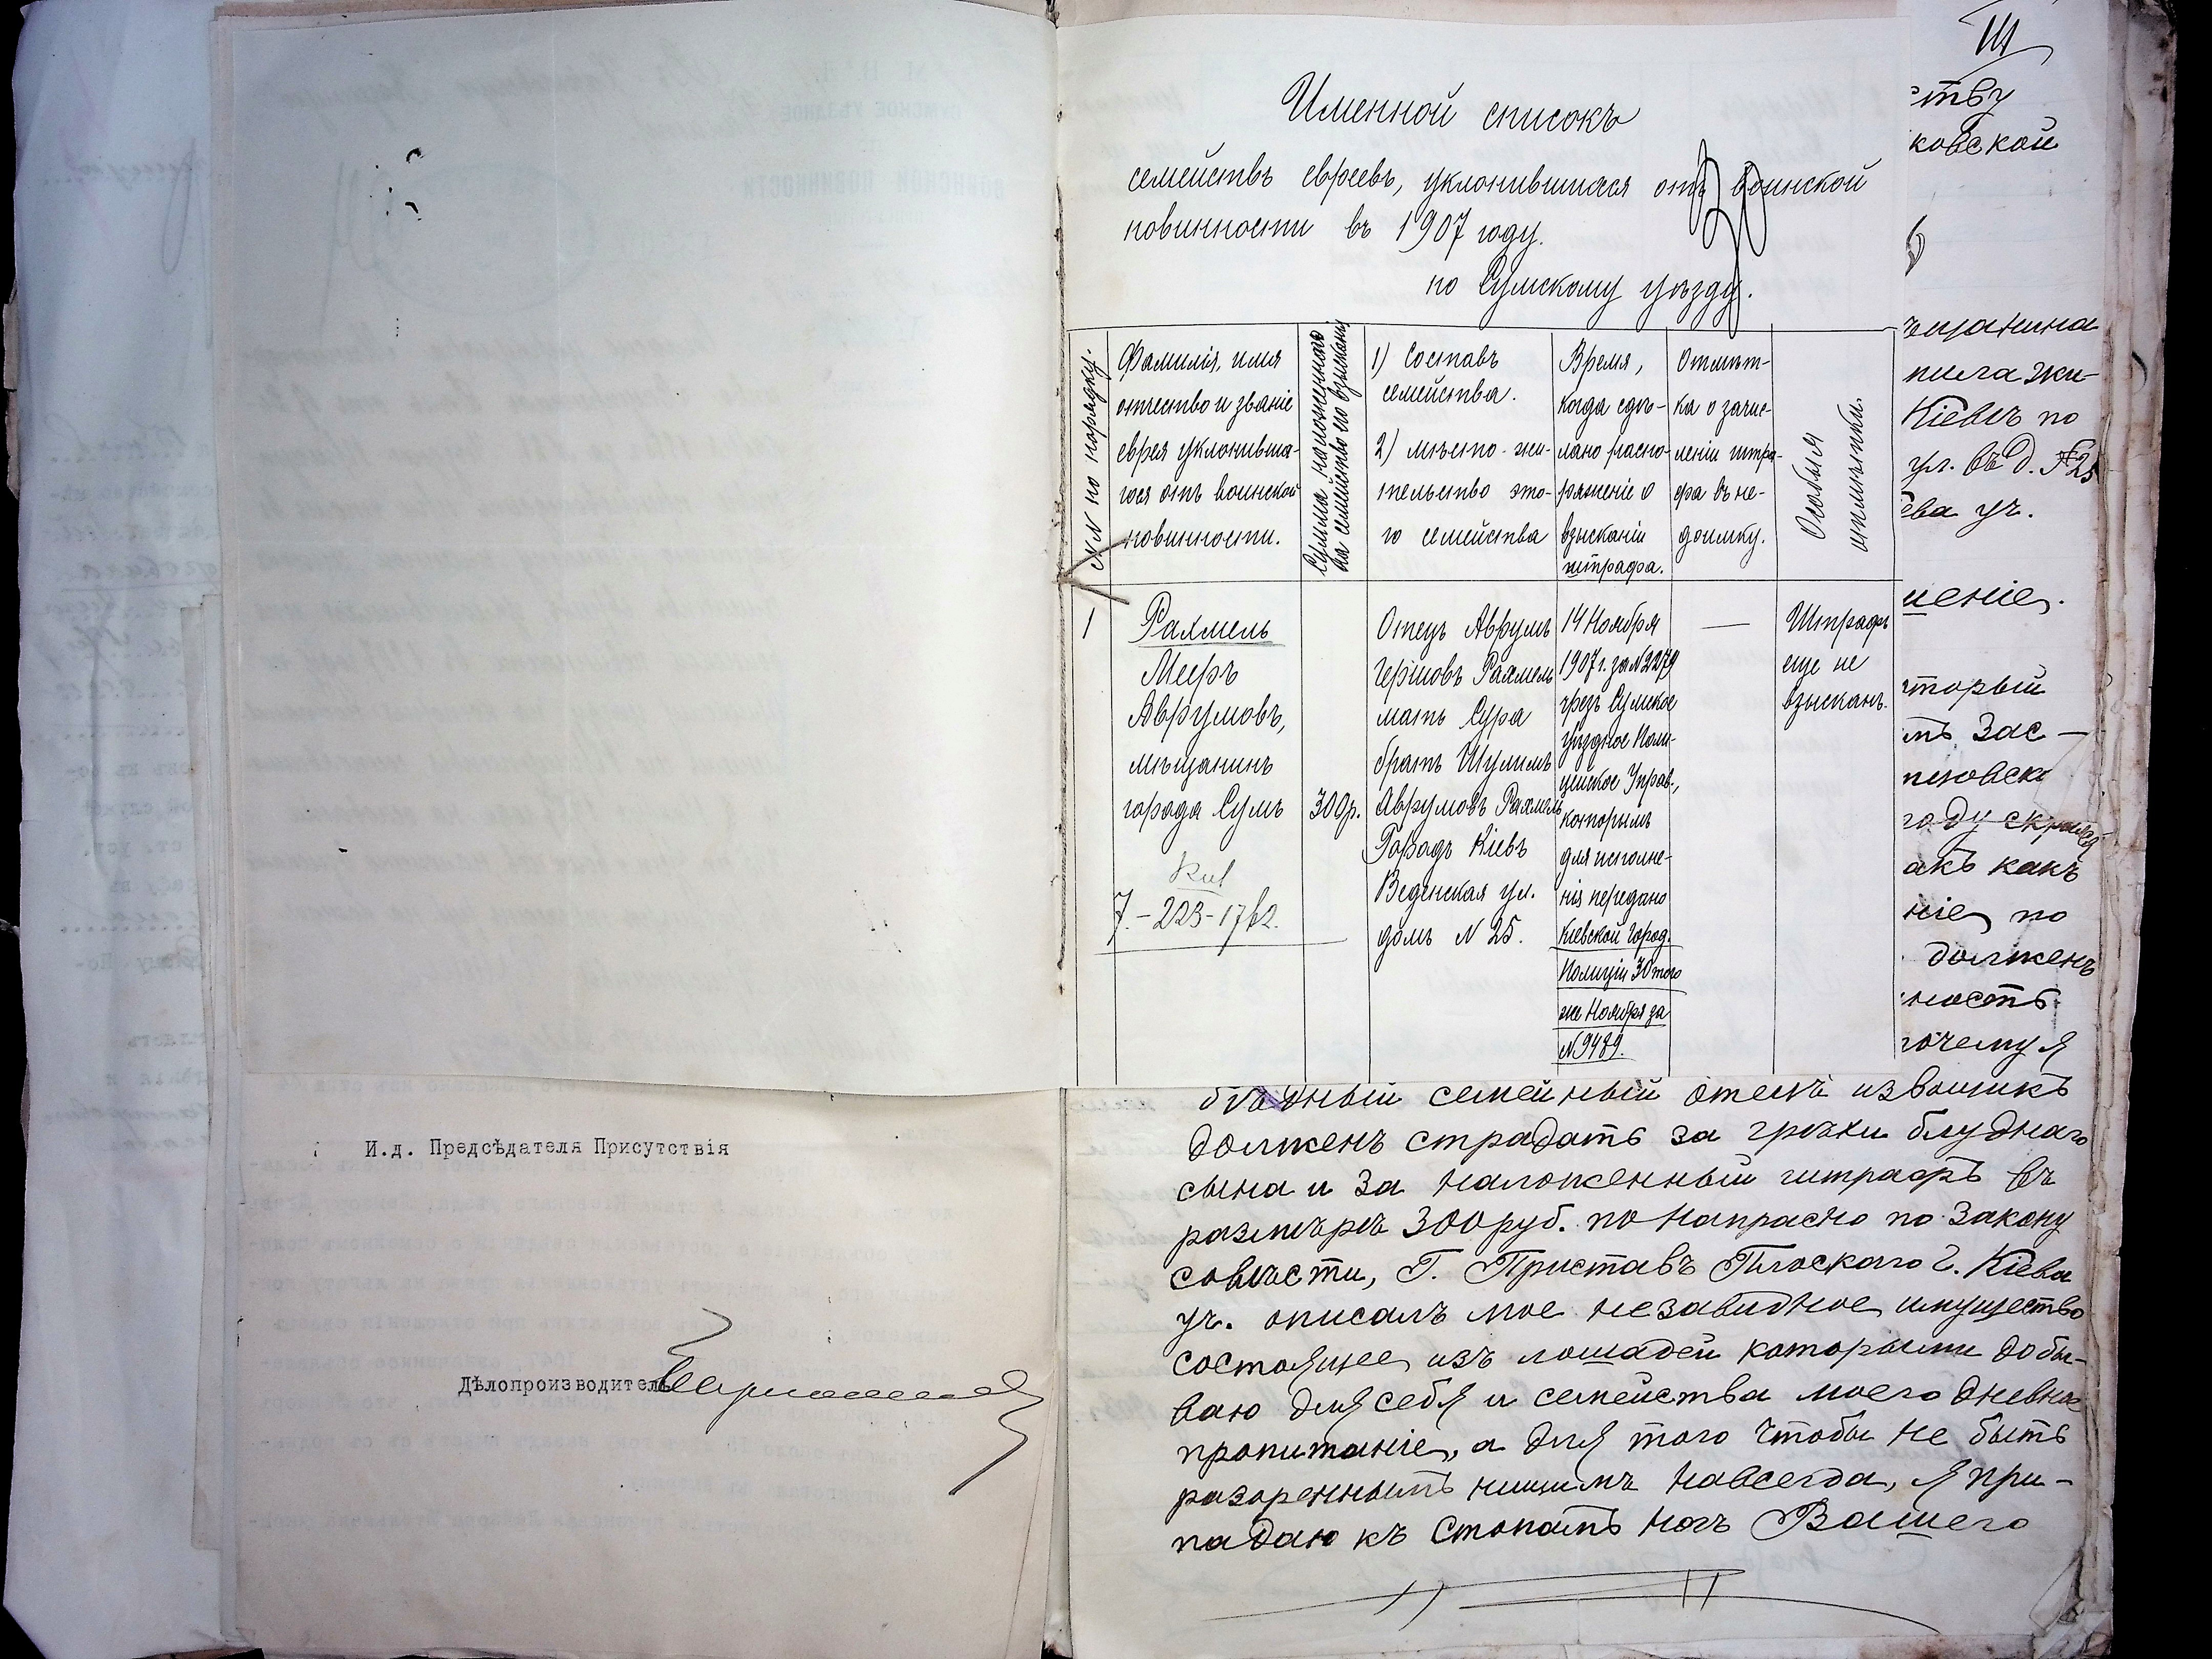 И.д. Предсѣдателя Присутствія
Дѣлопроизводитель
Именной списокъ
семействъ евреевъ, уклонившихся отъ воинской
повинности въ 1907 году.
по Сумскому уѣзду.
№№ по порядку.
Фамилія, имя
отчество и званіе
еврея уклонивша-
гося отъ воинской
повинности.
Сумма наложеннаго
на семейство его взысканія
1) Составъ
семейства.
2) мѣсто-жи-
тельство это-
го семейства
Время,
когда сдѣ-
лано распо-
ряженіе о
взысканіи
штрафа.
Отмѣт-
ка о зачис-
леніи штра-
фа въ не-
доимку.
Особыя
отмѣтки.
1
Рахмель
Мееръ
Аврумовъ,
мѣщанинъ
города Сумъ
7.-223-1762.
300р.
Отецъ Аврумъ
Гершовъ Рахмель
мать Сура
братъ Шулимъ
Аврумовъ Рахмель
Городъ Кіевъ
Веденская ул.
домъ N 25.
14 Ноября
1907 г. за N 2279
чрезъ Сумское
уѣздное Поли-
цейское Управ.,
которымъ
для исполне-
нія передано
Кіевской Город.
Полиціи 30 того
же Ноября за
N 9489.
—
Штрафъ
еще не
взысканъ.
ству
ковской
ѣщанина
жи-
Кіевѣ по
ул. въ д. № 25
ева уч.
шеніе.
торый
году скрылся
акъ какъ
ніе по
долженъ
ность
почему я
бѣдный семейный отецъ извощикъ
долженъ страдать за грѣхи блуднаго
сына и за наложенный штрафъ въ
размѣрѣ 300 руб. по напрасно по закону
совѣсти, Г. Приставъ Плоскаго г. Кіева
уч. описалъ мое незавидное имущество
состоящее изъ лошадей которыми добы-
ваю для себя и семейства моего дневное
пропитаніе, а для того чтобы не быть
разореннымъ нищимъ навсегда, я при-
падаю къ стопамъ ногъ Вашего